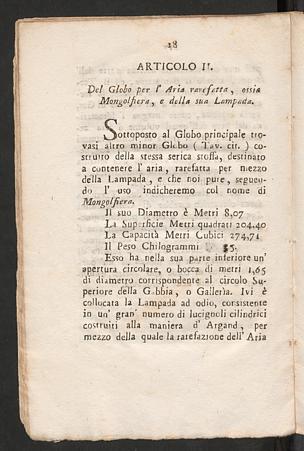 18
ARTICOLO II.
Del Globo per l' Aria rarefatta, ossia
Mongolfiera, e della sua Lampada.
Sottoposto al Globo principale tro-
vasi altro minor Globo ( Tav. cit. ) co-
struito della stessa serica stoffa, destinato
a contenere l' aria, rarefatta per mezzo
della Lampada, e che noi pure, seguen-
do l' uso indicheremo col nome di
Mongolfiera.
Il suo Diametro è Metri 8,07
La Superficie Metri quadrati 204.40
La Capacità Metri Cubici 274,71
Il Peso Chilogrammi 35.
Esso ha nella sua parte inferiore un'
apertura circolare, o bocca di metri 1,65
di diametro corrispondente al circolo Su-
periore della Gabbia, o Galleria. Ivi è
collucata la Lampada ad odio, consistente
in un' gran' numero di lucignoli cilindrici
costruiti alla maniera d' Argand, per
mezzo della quale la rarefazione dell' Aria